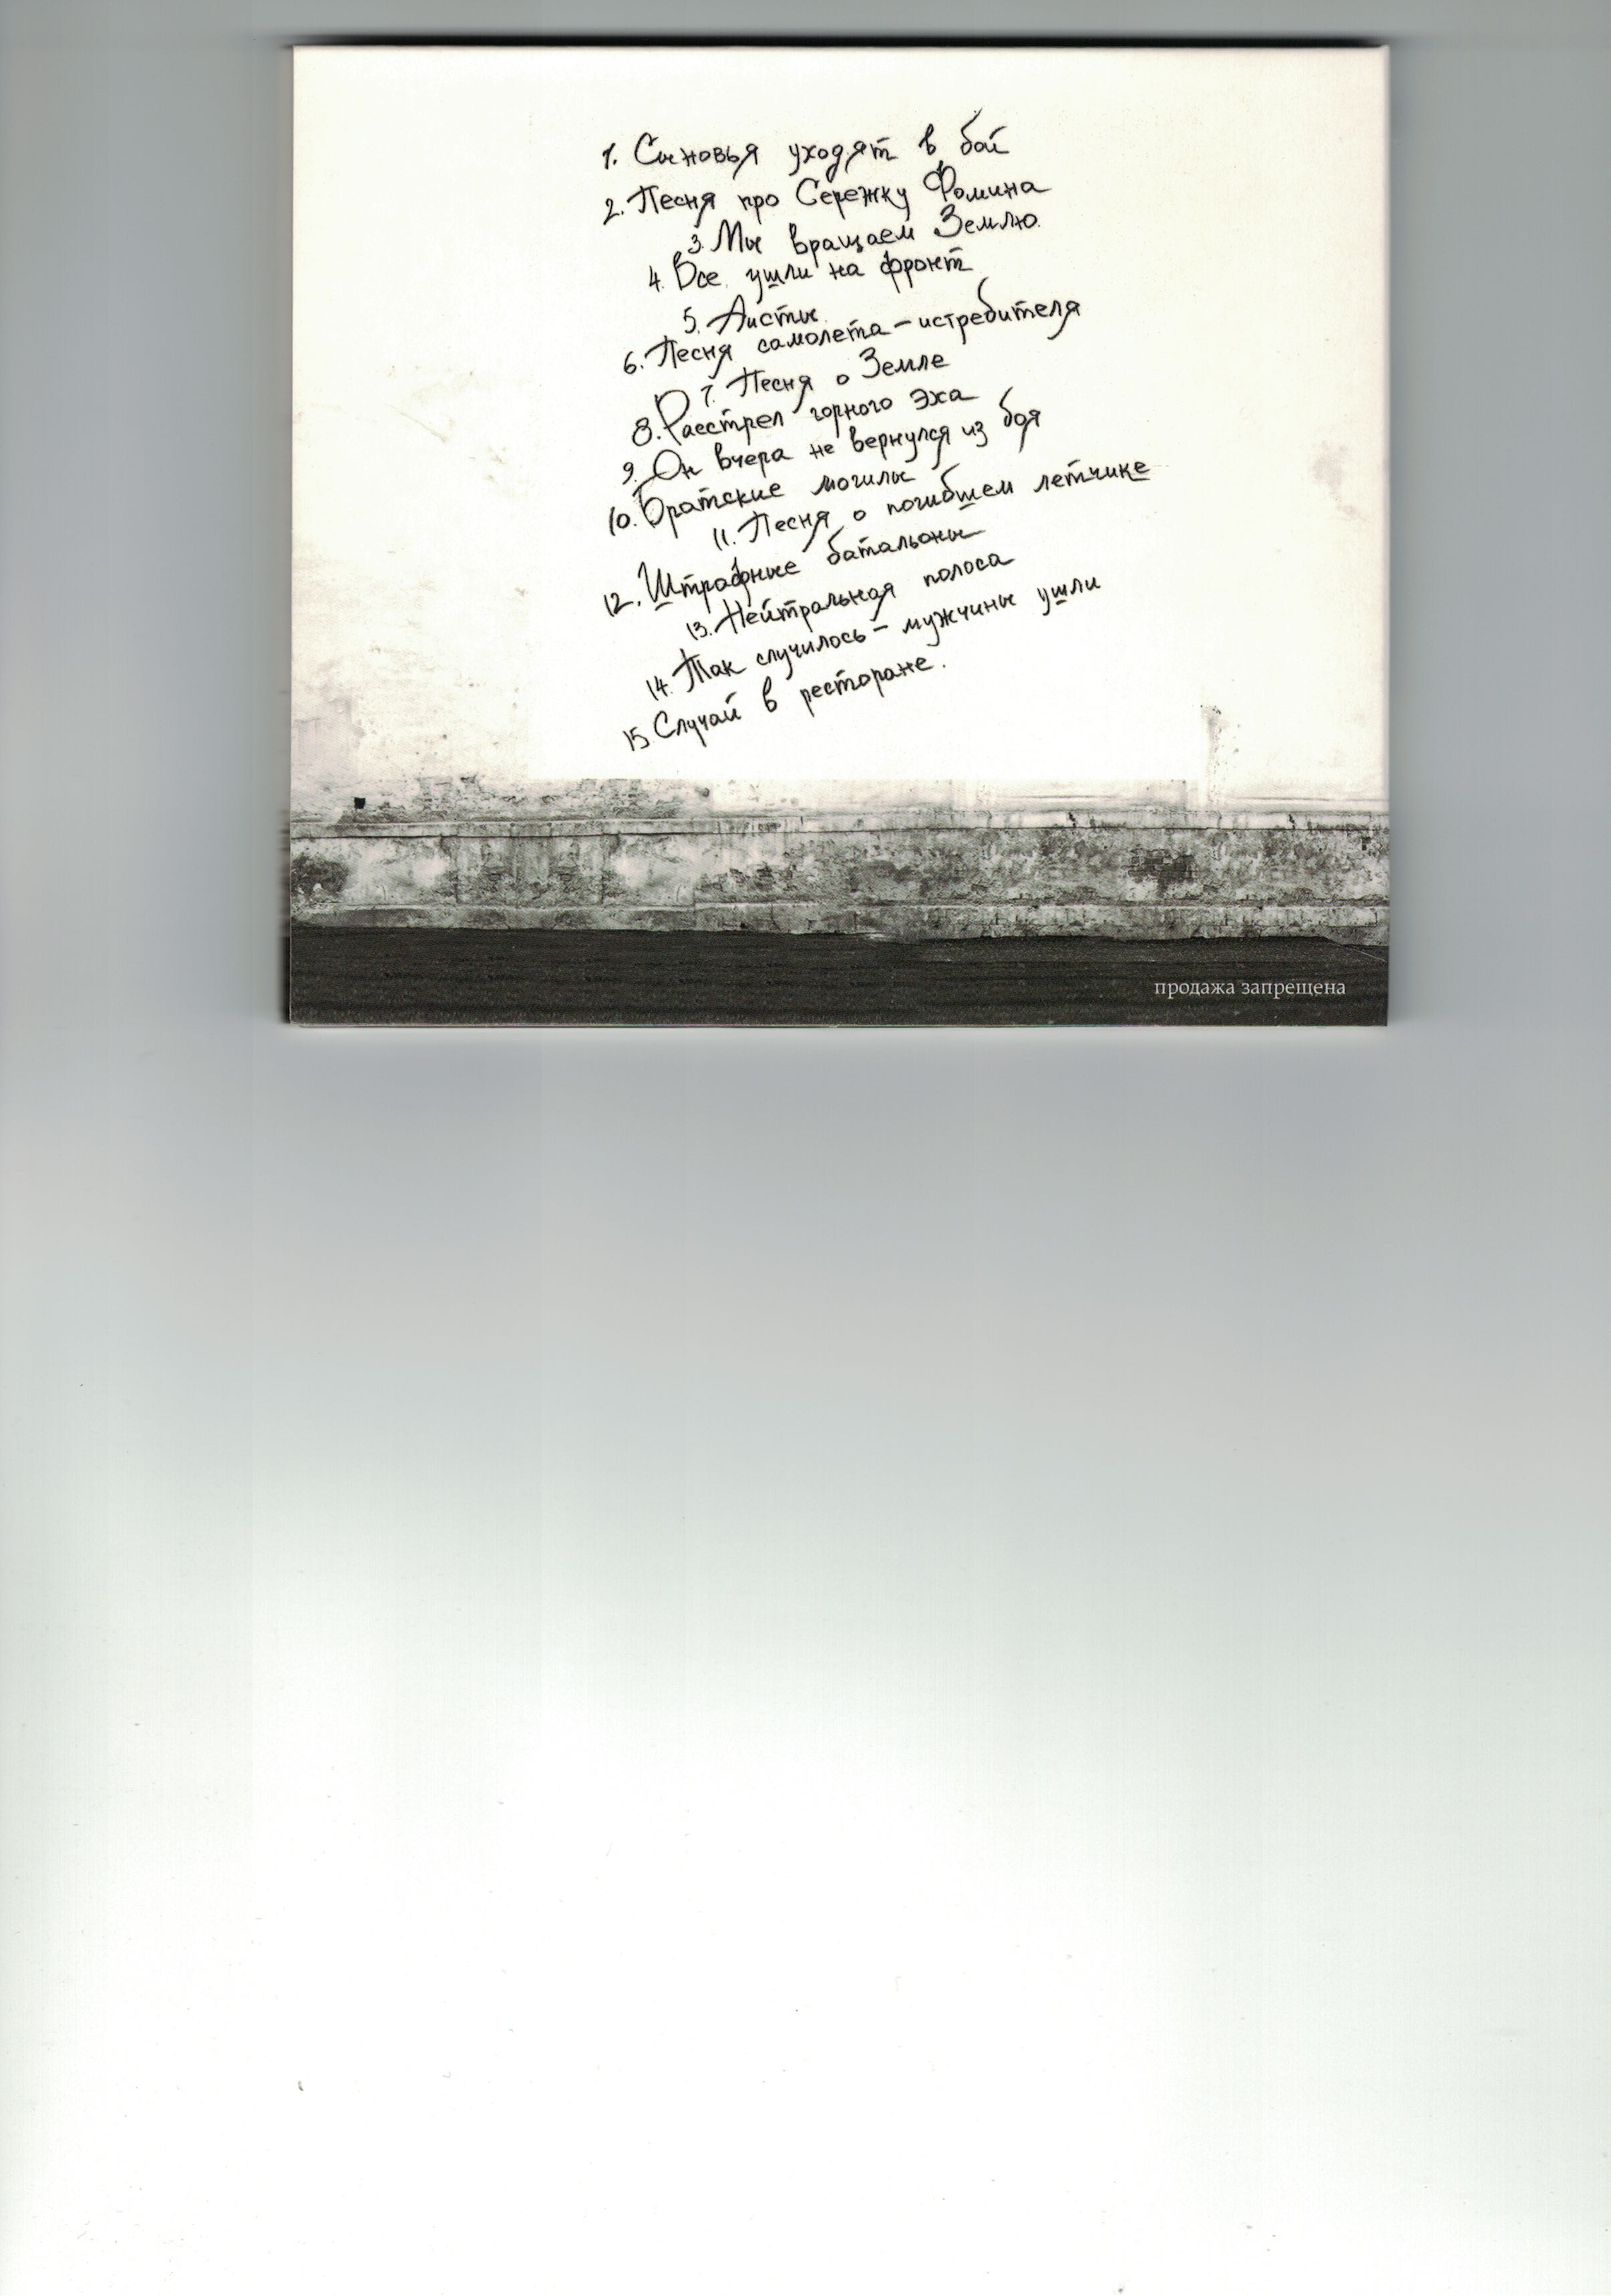 1. Сыновья уходят в бой
2. Песня про Сережку Фомина
3. Мы вращаем Землю.
4. Все ушли на фронт
5. Аисты.
6. Песня самолета-истребителя
7. Песня о Земле
8. Расстрел горного эха
9. Он вчера не вернулся из боя
10. Братские могилы
11. Песня о погибшем летчике
12. Штрафные батальоны
13. Нейтральная полоса
14. Так случилось - мужчины ушли
15 Случай в ресторане.
продажа запрещена